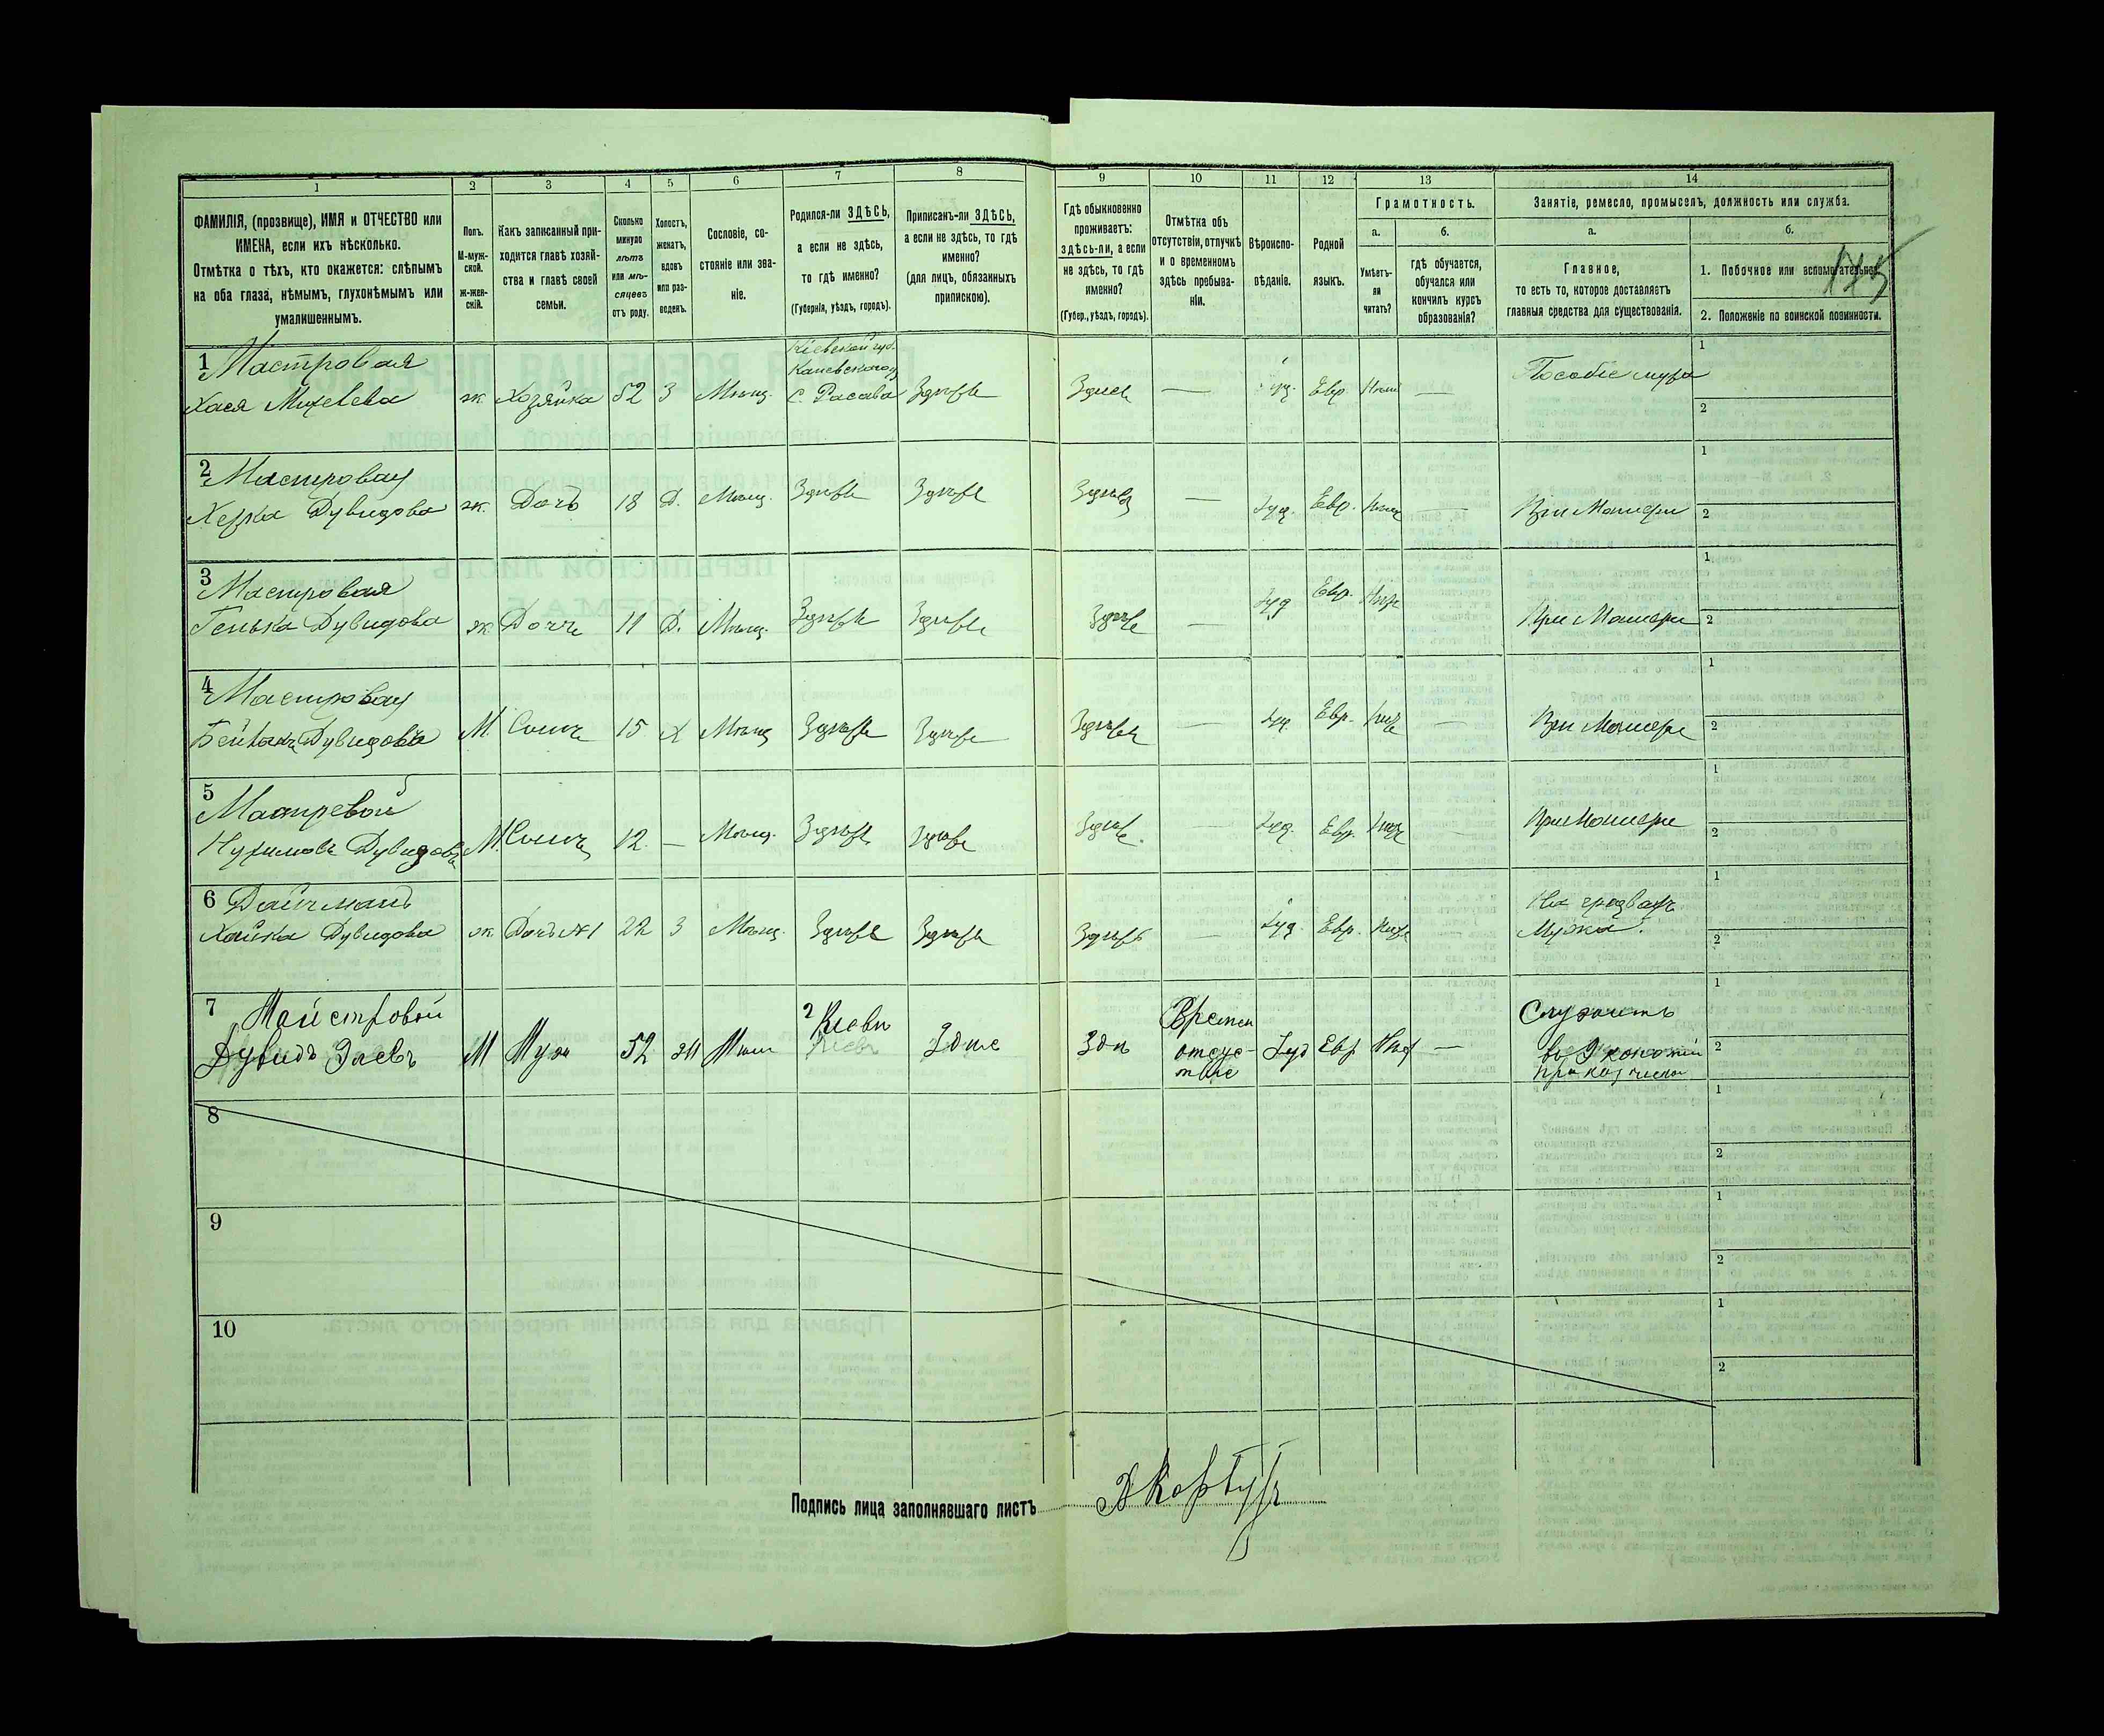 1 2 3 4 5 6 7 8 9 10 11 12 13 14
ФАМИЛІЯ, (прозвище), ИМЯ и ОТЧЕСТВО или
ИМЕНА, если ихъ нѣсколько.
Отмѣтка о тѣхъ, кто окажется: слѣпымъ
на оба глаза, нѣмымъ, глухонѣмымъ или
умалишеннымъ.
Полъ.
М-муж-
ской.
ж-жен-
скій.
Какъ записанный при-
ходится главѣ хозяй-
ства и главѣ своей
семьи.
Сколько
минуло
лѣтъ
или мѣ-
сяцевъ
отъ роду.
Холостъ,
женатъ,
вдовъ
или раз-
веденъ.
Сословіе, со-
стояніе или зва-
ніе.
Родился-ли ЗДѢСЬ,
а если не здѣсь,
то гдѣ именно?
(Губернія, уѣздъ, городъ).
Приписанъ-ли ЗДѢСЬ,
а если не здѣсь, то гдѣ
именно?
(для лицъ, обязанныхъ
припискою).
Гдѣ обыкновенно
проживаетъ:
здѣсь-ли, а если
не здѣсь, то гдѣ
именно?
(Губер., уѣздъ, городъ).
Отмѣтка объ
отсутствіи, отлучкѣ
и о временномъ
здѣсь пребыва-
ніи.
Вѣроиспо-
вѣданіе.
Родной
языкъ.
Грамотность.
а.
Умѣетъ-
ли
читать?
б.
гдѣ обучается,
обучался или
кончилъ курсъ
образованія?
Занятіе, ремесло, промыселъ, должность или служба.
а.
Главное,
то есть то, которое доставляетъ
главныя средства для существованія.
б.
1. Побочное или вспомогательное.
2. Положеніе по воинской повинности.
175
1 Мастровая
Хася
ж. Хозяйка 52 З Мѣщ.
Кіевской губ.
Каневскаго у
С. Расава
Здѣсь Здѣсь — Іуд. Евр. —
Пособіе мужа
1
2
2 Мастровая
Дувидова ж. Дочь 18 Д. Мѣщ. Здѣсь Здѣсь Здѣсь — Іуд. Евр. —
При Матери
1
2
3 Мастровая
Генька Дувидова ж. Дочь 11 Д. Мѣщ. Здѣсь Здѣсь Здѣсь — Іуд Евр.
При Матери
1
2
4 Мастровая
Дувидовъ М. Сынъ 15 Х Мѣщ Здѣсь Здѣсь Здѣсь — Іуд Евр. —
При Матери
1
2
5 Мастревой
Нухимовъ Дувидовъ М. Сынъ 12. — Мѣщ. Здѣсь Здѣсь Здѣсь — Іуд. Евр. —
При Матери
1
2
6 Дайчманъ
Хайка Дувидова ж. Дочь №1 22 З Мѣщ. Здѣсь Здѣсь Здѣсь — Іуд. Евр. —
Мужа.
1
2
7 Майстровой
Дувидъ М Мужъ 52 Жн Мѣщ
Кіевъ
Здѣс Здѣ
Времен
отсус-
твие
Іуд Евр —
Служитъ
въ Экономіи
прикащикомъ
1
2
8
1
2
9
1
2
10
1
2
Подпись лица заполнявшаго листъ